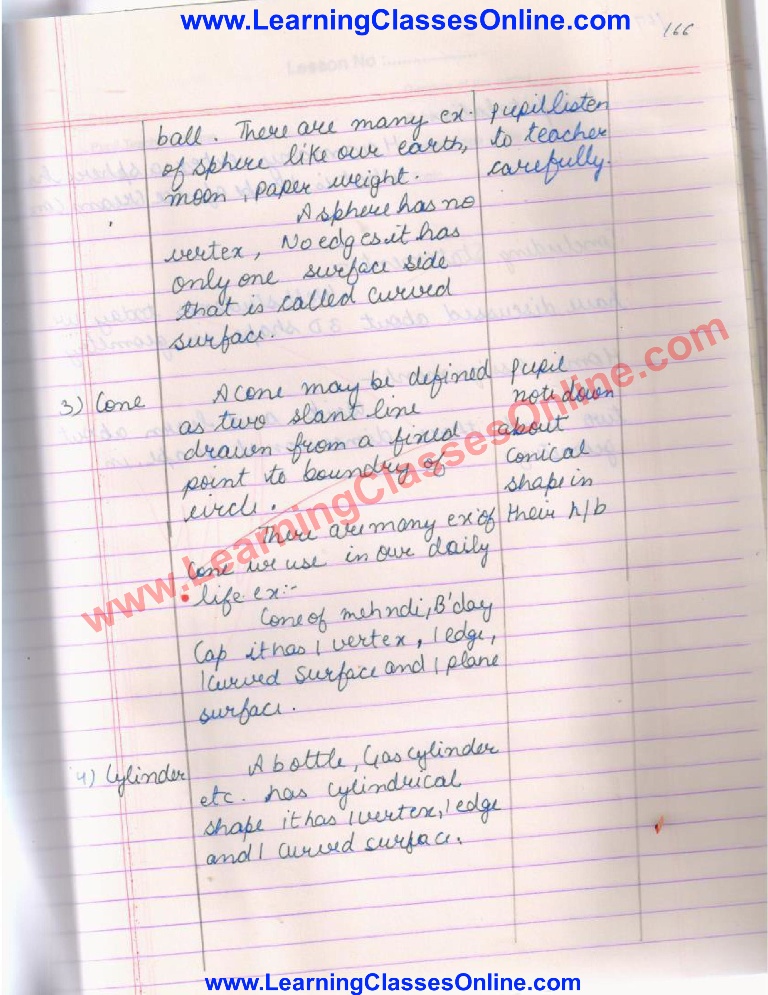 www.LearningClassesOnline.com
166
Lesson No
ball. There are many ex. pupil listen
of sphere like our earth, to teacher
moon, paper weight. carefully.
A sphere has no
vertex, No edges it has
only one surface side
that is called curved
surface.
3) Cone A cone may be defined pupil
as two slant line note down
drawn from a fixed about
point to boundry of conical
circle. shape in
There are many ex of their n/b
Cone we use in our daily
life ex:-
Cone of mehndi, B'day
Cap it has 1 vertex, 1 edge,
1 curved surface and 1 plane
surface.
4) Cylinder A bottle, Gas cylinder
etc. has cylindrical
shape it has 1 vertex, 1 edge
and 1 curved surface.
www.LearningClassesOnline.com
www.LearningClassesOnline.com